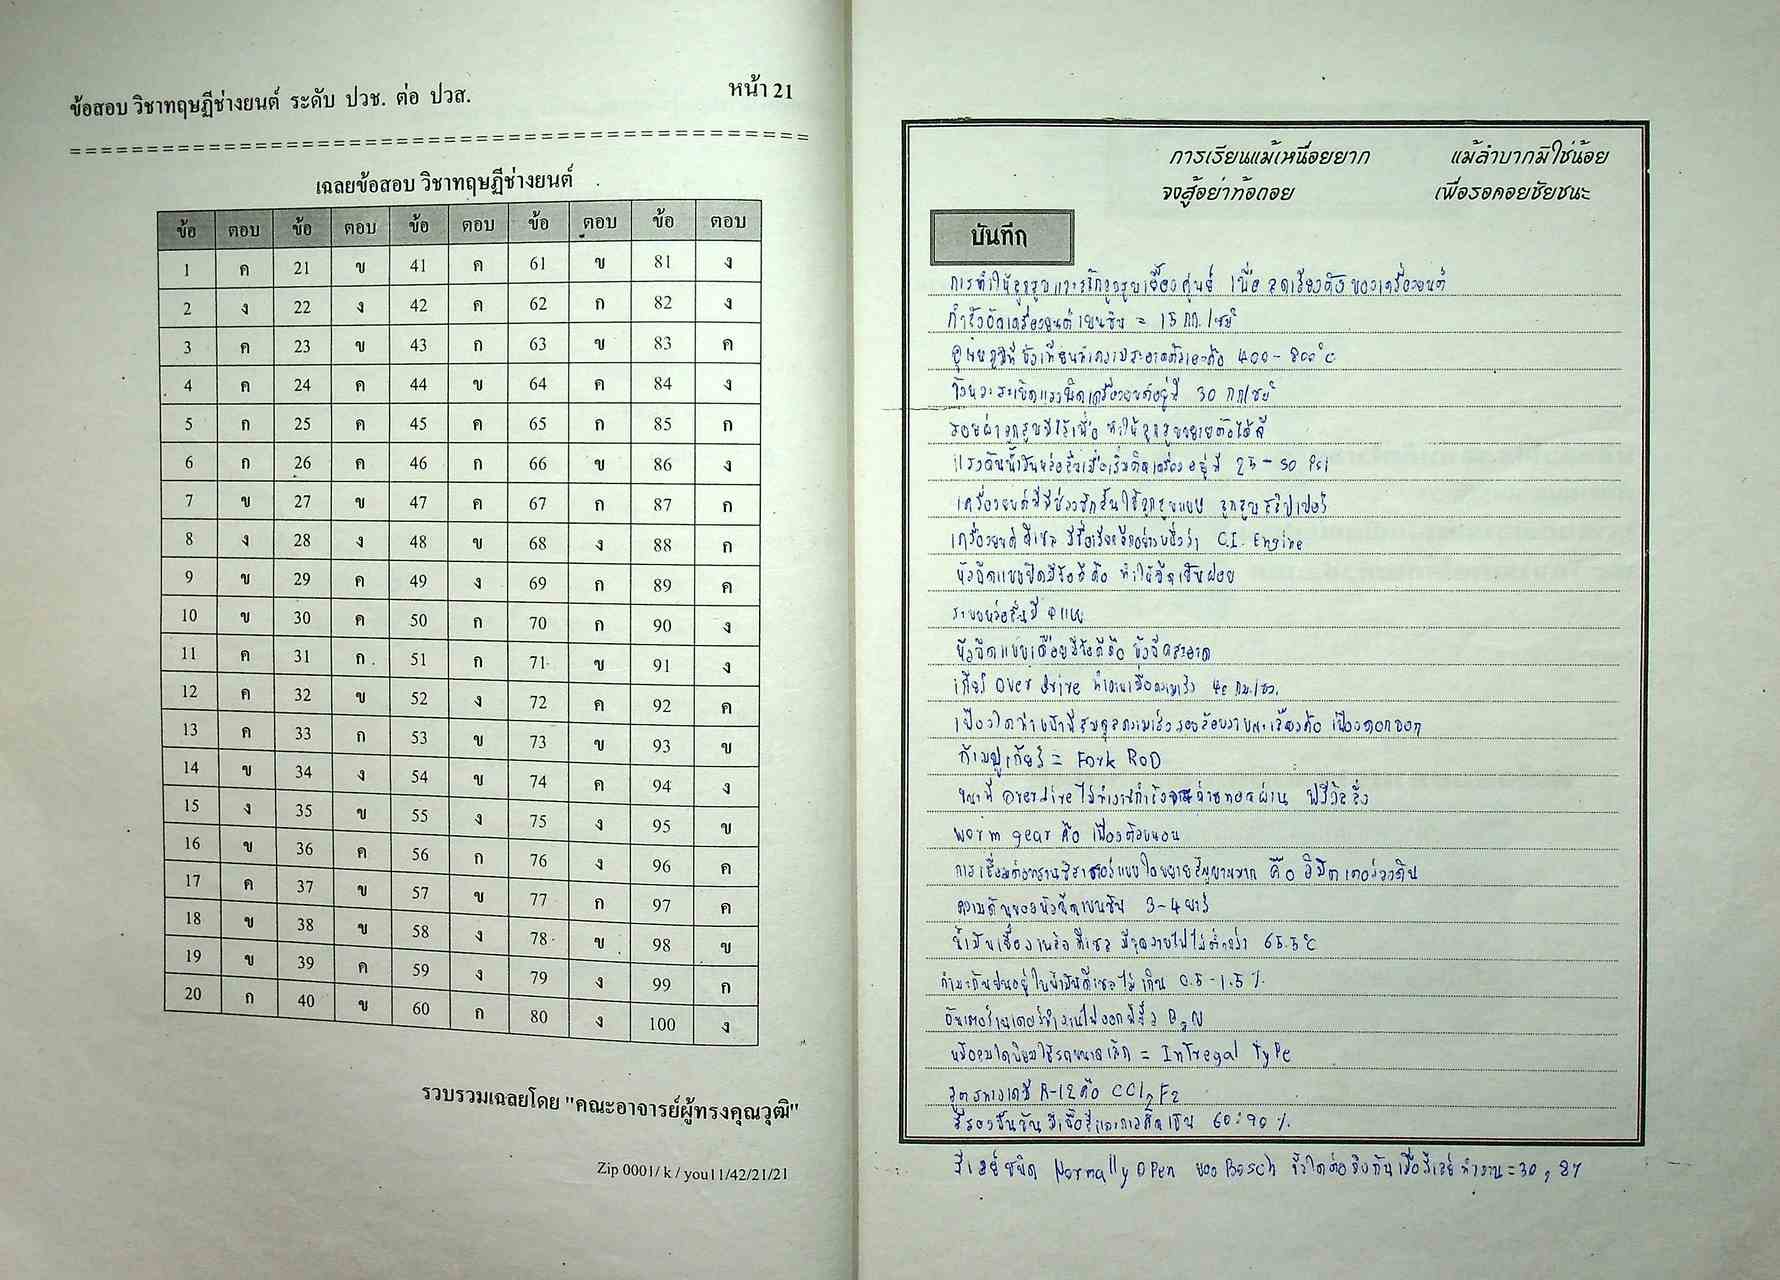 ข้อสอบ วิชาทฤษฎีช่างยนต์ ระดับ ปวช. ต่อ ปวส. หน้า 21
เฉลยข้อสอบ วิชาทฤษฎีช่างยนต์
ข้อ ตอบ ข้อ ตอบ ข้อ ตอบ ข้อ ตอบ ข้อ ตอบ
1 ค 21 ข 41 ค 61 ข 81 ง
2 ง 22 ง 42 ค 62 ก 82 ง
3 ค 23 ข 43 ก 63 ข 83 ค
4 ค 24 ค 44 ข 64 ค 84 ง
5 ก 25 ค 45 ค 65 ก 85 ก
6 ก 26 ค 46 ก 66 ข 86 ง
7 ข 27 ข 47 ค 67 ก 87 ก
8 ง 28 ง 48 ข 68 ง 88 ก
9 ข 29 ค 49 ง 69 ก 89 ค
10 ข 30 ค 50 ก 70 ก 90 ง
11 ค 31 ก 51 ก 71 ข 91 ง
12 ค 32 ข 52 ง 72 ค 92 ค
13 ค 33 ก 53 ข 73 ข 93 ข
14 ข 34 ง 54 ข 74 ค 94 ง
15 ง 35 ข 55 ง 75 ง 95 ข
16 ข 36 ค 56 ก 76 ง 96 ค
17 ค 37 ข 57 ข 77 ก 97 ค
18 ข 38 ข 58 ง 78 ข 98 ข
19 ข 39 ค 59 ง 79 ง 99 ก
20 ก 40 ข 60 ก 80 ง 100 ง
รวบรวมเฉลยโดย "คณะอาจารย์ผู้ทรงคุณวุฒิ"
Zip 0001/ k / you11/42/21/21
การเรียนแม้เหนื่อยยาก แม้ลำบากมิใช่น้อย
จงสู้อย่าท้อถอย เพื่อรอคอยชัยชนะ
บันทึก
การทำให้ลูกสูบและสลักลูกสูบเยื้องศูนย์ เพื่อ ลดเสียงดังของเครื่องยนต์
กำลังอัดเครื่องยนต์เบนซิน = 15 กก./ซม²
อุณหภูมิที่หัวเทียนทำความสะอาดตัวเองคือ 400-800°C
จังหวะระเบิดแรงบิดเครื่องยนต์อยู่ที่ 30 กก/ซม²
รอยผ่าลูกสูบมีไว้เพื่อ ทำให้ลูกสูบขยายตัวได้ดี
แรงดันน้ำมันหล่อลื่นเมื่อเริ่มติดเครื่องอยู่ที่ 25-30 Psi
เครื่องยนต์ที่มีช่วงชักสั้นใช้ลูกสูบแบบ ลูกสูบสลิปเปอร์
เครื่องยนต์ดีเซล มีชื่อเรียกอีกอย่างหนึ่งว่า C.I. Engine
หัวฉีดแบบปิดมีข้อดีคือ ทำให้ฉีดเป็นฝอย
ระบบหล่อลื่นมี 4 แบบ
หัวฉีดแบบเดือยมีข้อดีคือ หัวฉีดสะอาด
เกียร์ Over drive ทำงานเมื่อความเร็ว 40 กม./ชม.
เฟืองใดทำหน้าที่สมดุลความเร็วรอบล้อขณะเลี้ยวคือ เฟืองดอกจอก
ก้ามปูเกียร์ = Fork RoD
ขณะที่ overdrive ไม่ทำงานกำลังจะถ่ายทอดผ่าน ฟรีวีลลิ่ง
worm gear คือ เฟืองตัวหนอน
การเชื่อมต่อทรานซิสเตอร์แบบใดขยายสัญญาณมาก คือ อิมิตเตอร์ลงดิน
ความดันของหัวฉีดเบนซิน 3-4 บาร์
น้ำมันเชื้อเพลิงดีเซล มีจุดวาบไฟไม่ต่ำกว่า 65.5°C
กำมะถันปนอยู่ในน้ำมันดีเซลไม่เกิน 0.5-1.5%
หม้อลมใดนิยมใช้รถขนาดเล็ก = InTregal TyPe
สูตรทางเคมี R-12 คือ CCl2F2
สีรองพื้นข้น มีเนื้อสีและกาวคิดเป็น 60:90%
รีเลย์ชนิด Normally OPen ของ Bosch ขั้วใดต่อถึงกันเมื่อรีเลย์ทำงาน = 30, 87